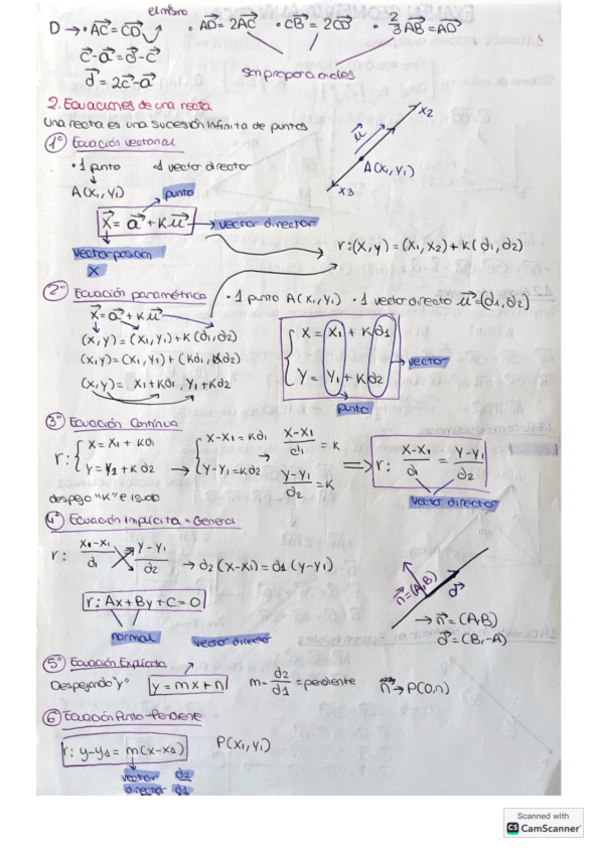 el mismo
D → · AC = CD · AD = 2AC · CB = 2CD · 2/3 AB = AD
c - a = d - c
d = 2c - a
son proporcionales
2. Ecuaciones de una recta
una recta es una sucesión infinita de puntos
1º Ecuación vectorial
· 1 punto · 1 vector director
A(x₁, y₁)
punto
x = a + Ku → vector director
vector posición
X
u
x₂
A(x₁, y₁)
x₃
r:(x,y) = (x₁, x₂) + K(d₁, d₂)
2º Ecuación paramétrica · 1 punto A(x₁, y₁) · 1 vector directó u = (d₁, d₂)
x = a + Ku
(x,y) = (x₁, y₁) + K(d₁, d₂)
(x,y) = (x₁, y₁) + (Kd₁, Kd₂)
(x,y) = x₁ + Kd₁, y₁ + Kd₂
X = x₁ + K d₁
Y = y₁ + K d₂
vector
punto
3º Ecuación Continua
r: { x = x₁ + Kd₁ → { x - x₁ = Kd₁ → x-x₁/d₁ = K
y = y₁ + Kd₂ y - y₁ = Kd₂ y-y₁/d₂ = K
⇒ r: x-x₁/d₁ = y-y₁/d₂
despejo "K" e igualo
vector director
4º Ecuación Implícita = General
r: x-x₁/d₁ y-y₁/d₂ → d₂(x-x₁) = d₁(y-y₁)
r: Ax + By + C = 0
normal vector directo
n = (A,B)
d
→ n = (A,B)
d = (B,-A)
5º Ecuación Explícita
Despejando "y" y = mx + n m = d₂/d₁ = pendiente n → P(0,n)
6 Ecuación Punto-Pendiente
r: y-y₁ = m(x-x₁) P(x₁, y₁)
vector d₂
director d₁
Scanned with
CS CamScanner